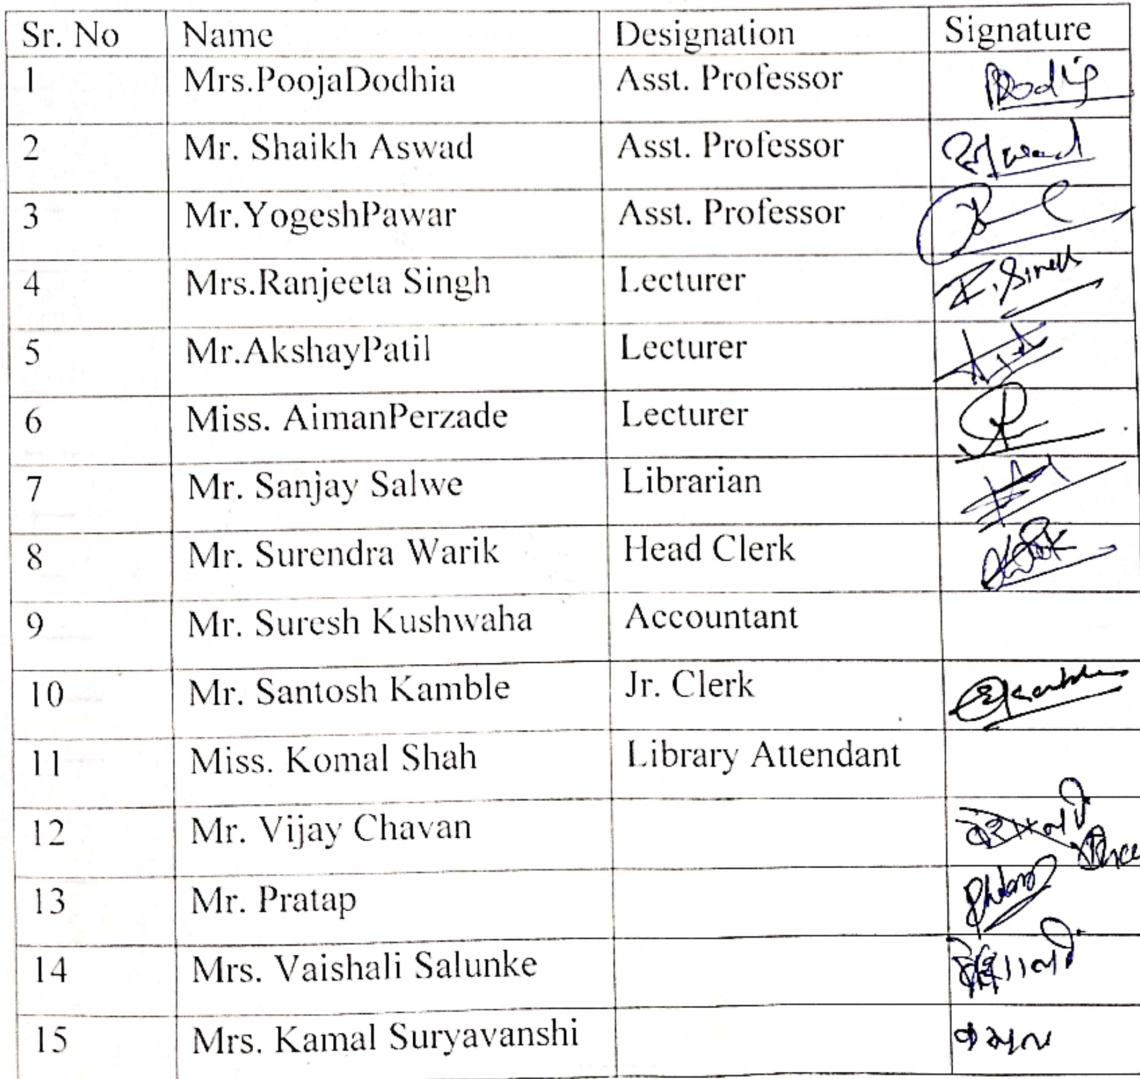 Sr. No Name Designation Signature
1 Mrs.PoojaDodhia Asst. Professor
2 Mr. Shaikh Aswad Asst. Professor
3 Mr.YogeshPawar Asst. Professor
4 Mrs.Ranjeeta Singh Lecturer R. Singh
5 Mr.AkshayPatil Lecturer
6 Miss. AimanPerzade Lecturer
7 Mr. Sanjay Salwe Librarian
8 Mr. Surendra Warik Head Clerk
9 Mr. Suresh Kushwaha Accountant
10 Mr. Santosh Kamble Jr. Clerk
11 Miss. Komal Shah Library Attendant
12 Mr. Vijay Chavan
13 Mr. Pratap
14 Mrs. Vaishali Salunke
15 Mrs. Kamal Suryavanshi कमल